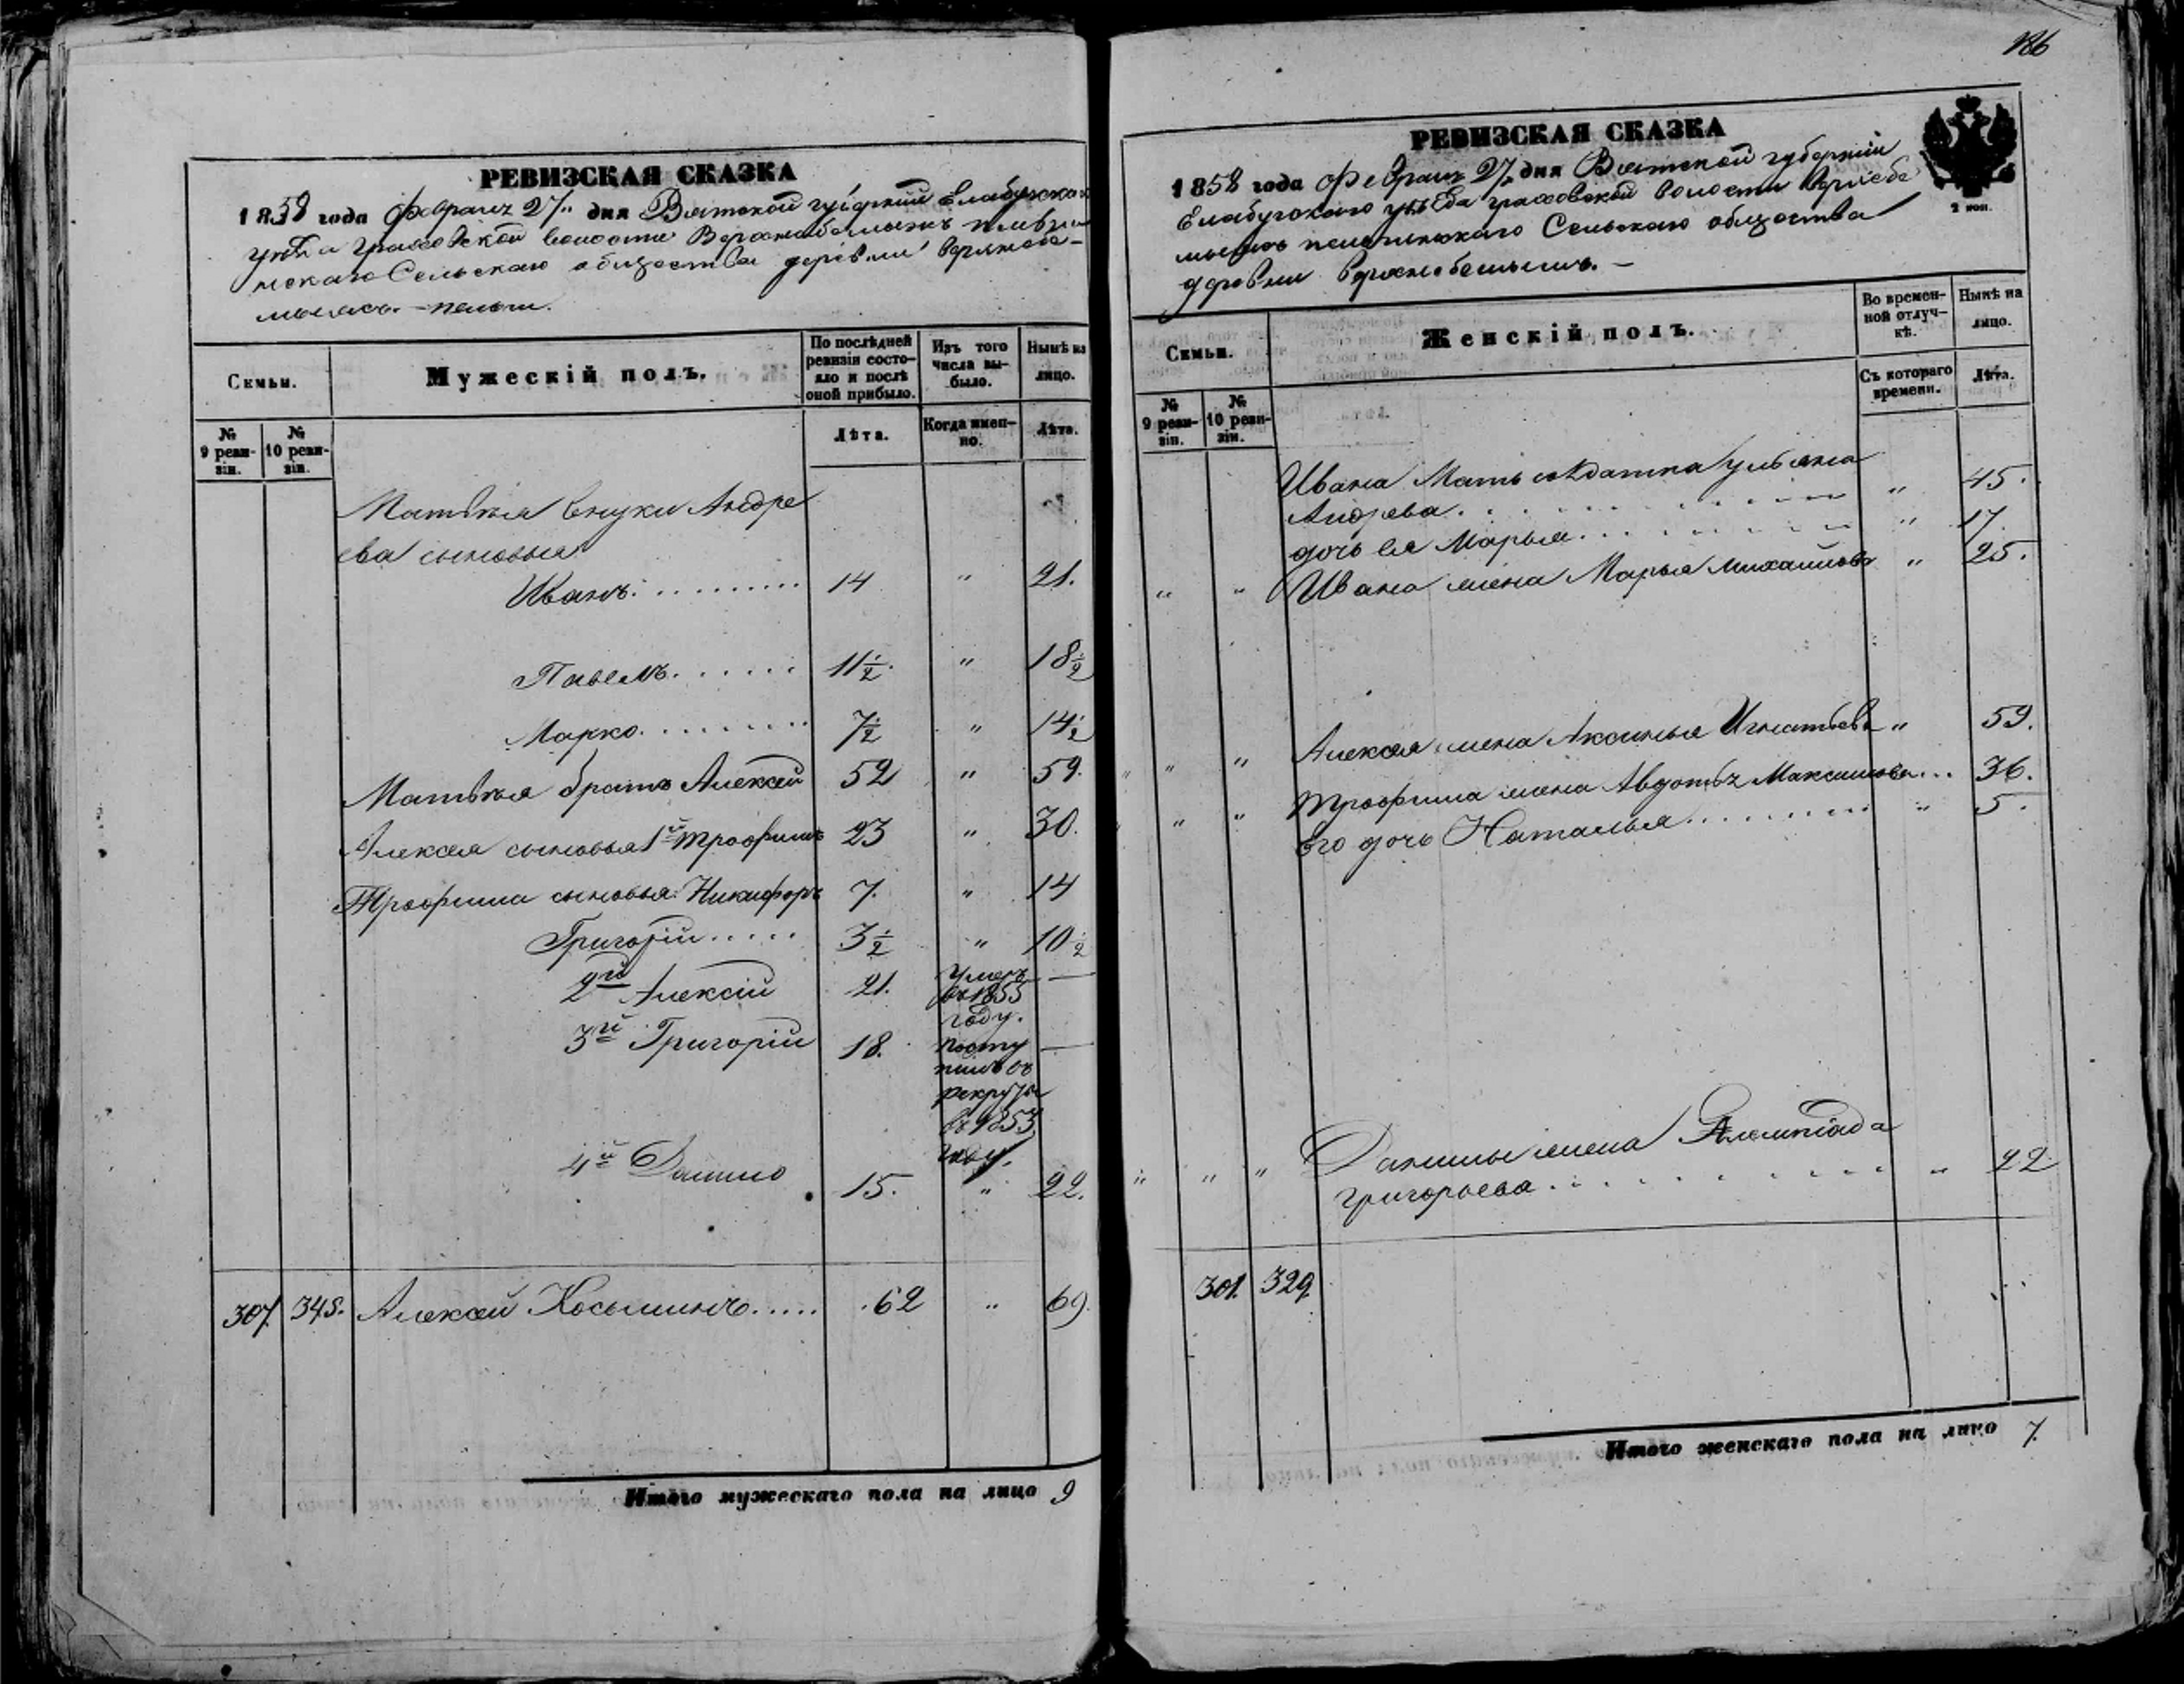 РЕВИЗСКАЯ СКАЗКА
1858 года Февраля 27 дня Вятской губерніи Елабужскаго
уѣзда Граховской волости
Сельскаго общества деревни
Семьи.
Мужескій полъ.
По послѣдней ревизіи состояло и послѣ оной прибыло.
Изъ того числа выбыло.
Нынѣ на лицо.
№ 9 ревизіи.
№ 10 ревизіи.
Лѣта.
Когда именно.
Лѣта.
Матвѣя внуки Андре
ева сыновья
Иванъ. 14 " 21.
Павелъ. 11½. " 18½
Марко. 7½ " 14½
Матвѣя братъ Алексѣй 52 " 59.
Алексѣя сыновья 1й Трофимъ 23 " 30.
Трофима сыновья: Никифоръ 7. " 14
Григорій 3½ " 10½
2й Алексѣй 21. умеръ въ 1855 году. —
3й Григорій 18. посту пилъ въ рекруты въ 1853 году. —
4й Данило 15. " 22.
307. 345. Алексѣй Косьминъ 62 " 69.
Итого мужескаго пола на лицо 9
186
РЕВИЗСКАЯ СКАЗКА
2 коп.
1858 года Февраля 27 дня Вятской губерніи
Елабужскаго уѣзда Граховской волости
Сельскаго общества
деревни
Семьи.
Женскій полъ.
Во временной отлучкѣ.
Нынѣ на лицо.
№ 9 ревизіи.
№ 10 ревизіи.
Съ котораго времени.
Лѣта.
Ивана Мать солдатка Ульяна
Андрева. " 45.
дочь ея Марья " 17.
" " Ивана жена Марья Михайлова " 25.
" " Алексѣя жена Аксинья Игнатьева " 59.
" " Трофима жена Авдотья Максимова 36.
его дочь Наталья " 5.
" " " Данилы жена Алимпіада
Григорьева " 22
301. 329.
Итого женскаго пола на лицо 7.